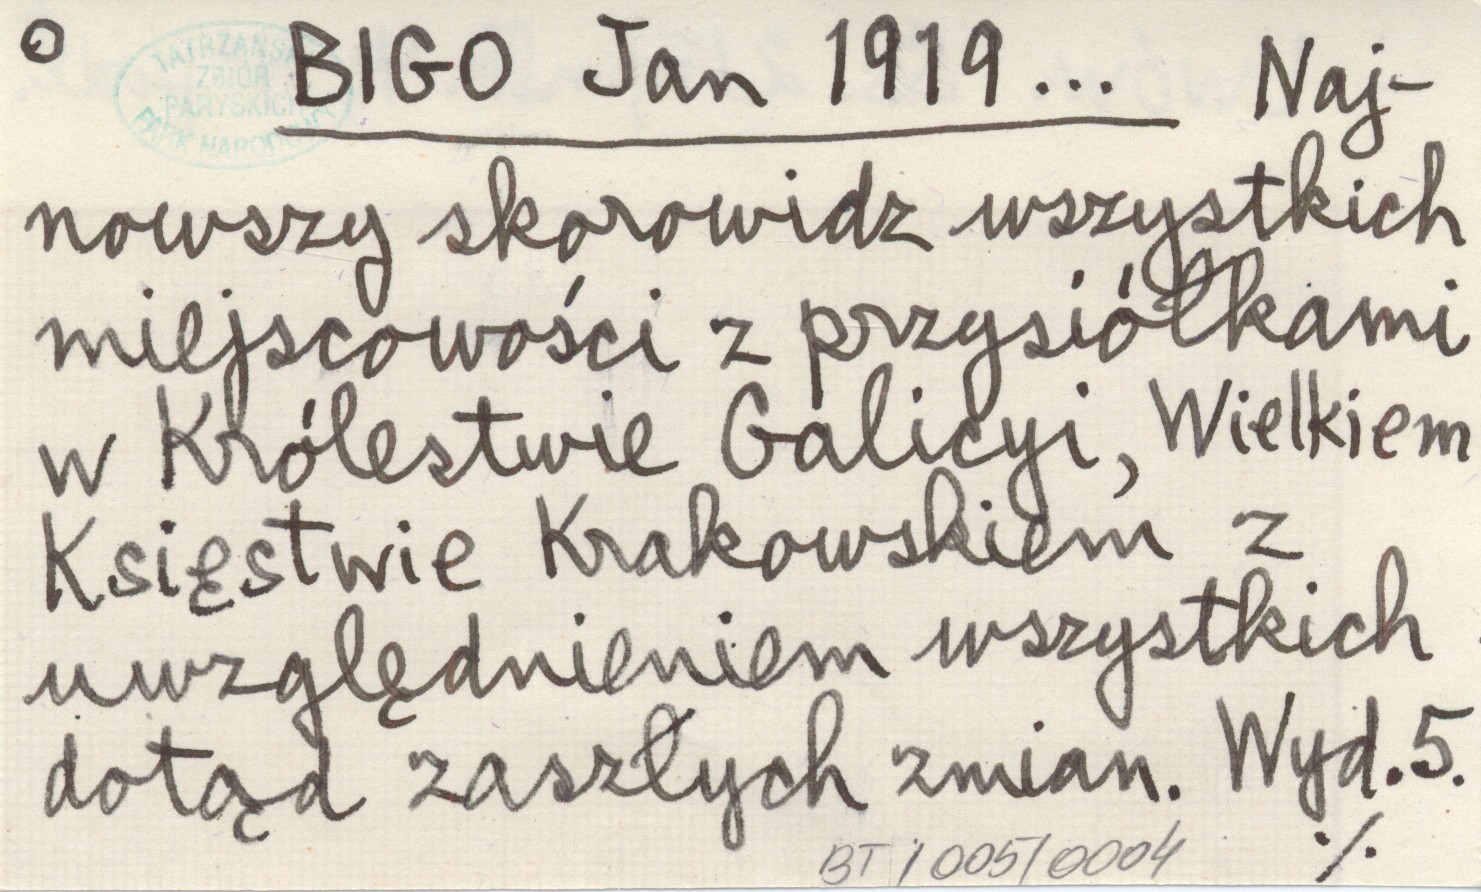 TATRZAŃSKI
ZBIÓR
PARYSKICH
PARK NARODOWY
BIGO Jan 1919... Naj-
nowszy skorowidz wszystkich
miejscowości z przysiółkami
w Królestwie Galicyi, Wielkiem
Księstwie Krakowskiem z
uwzględnieniem wszystkich
dotąd zaszłych zmian. Wyd. 5.
./.
BT/005/0004